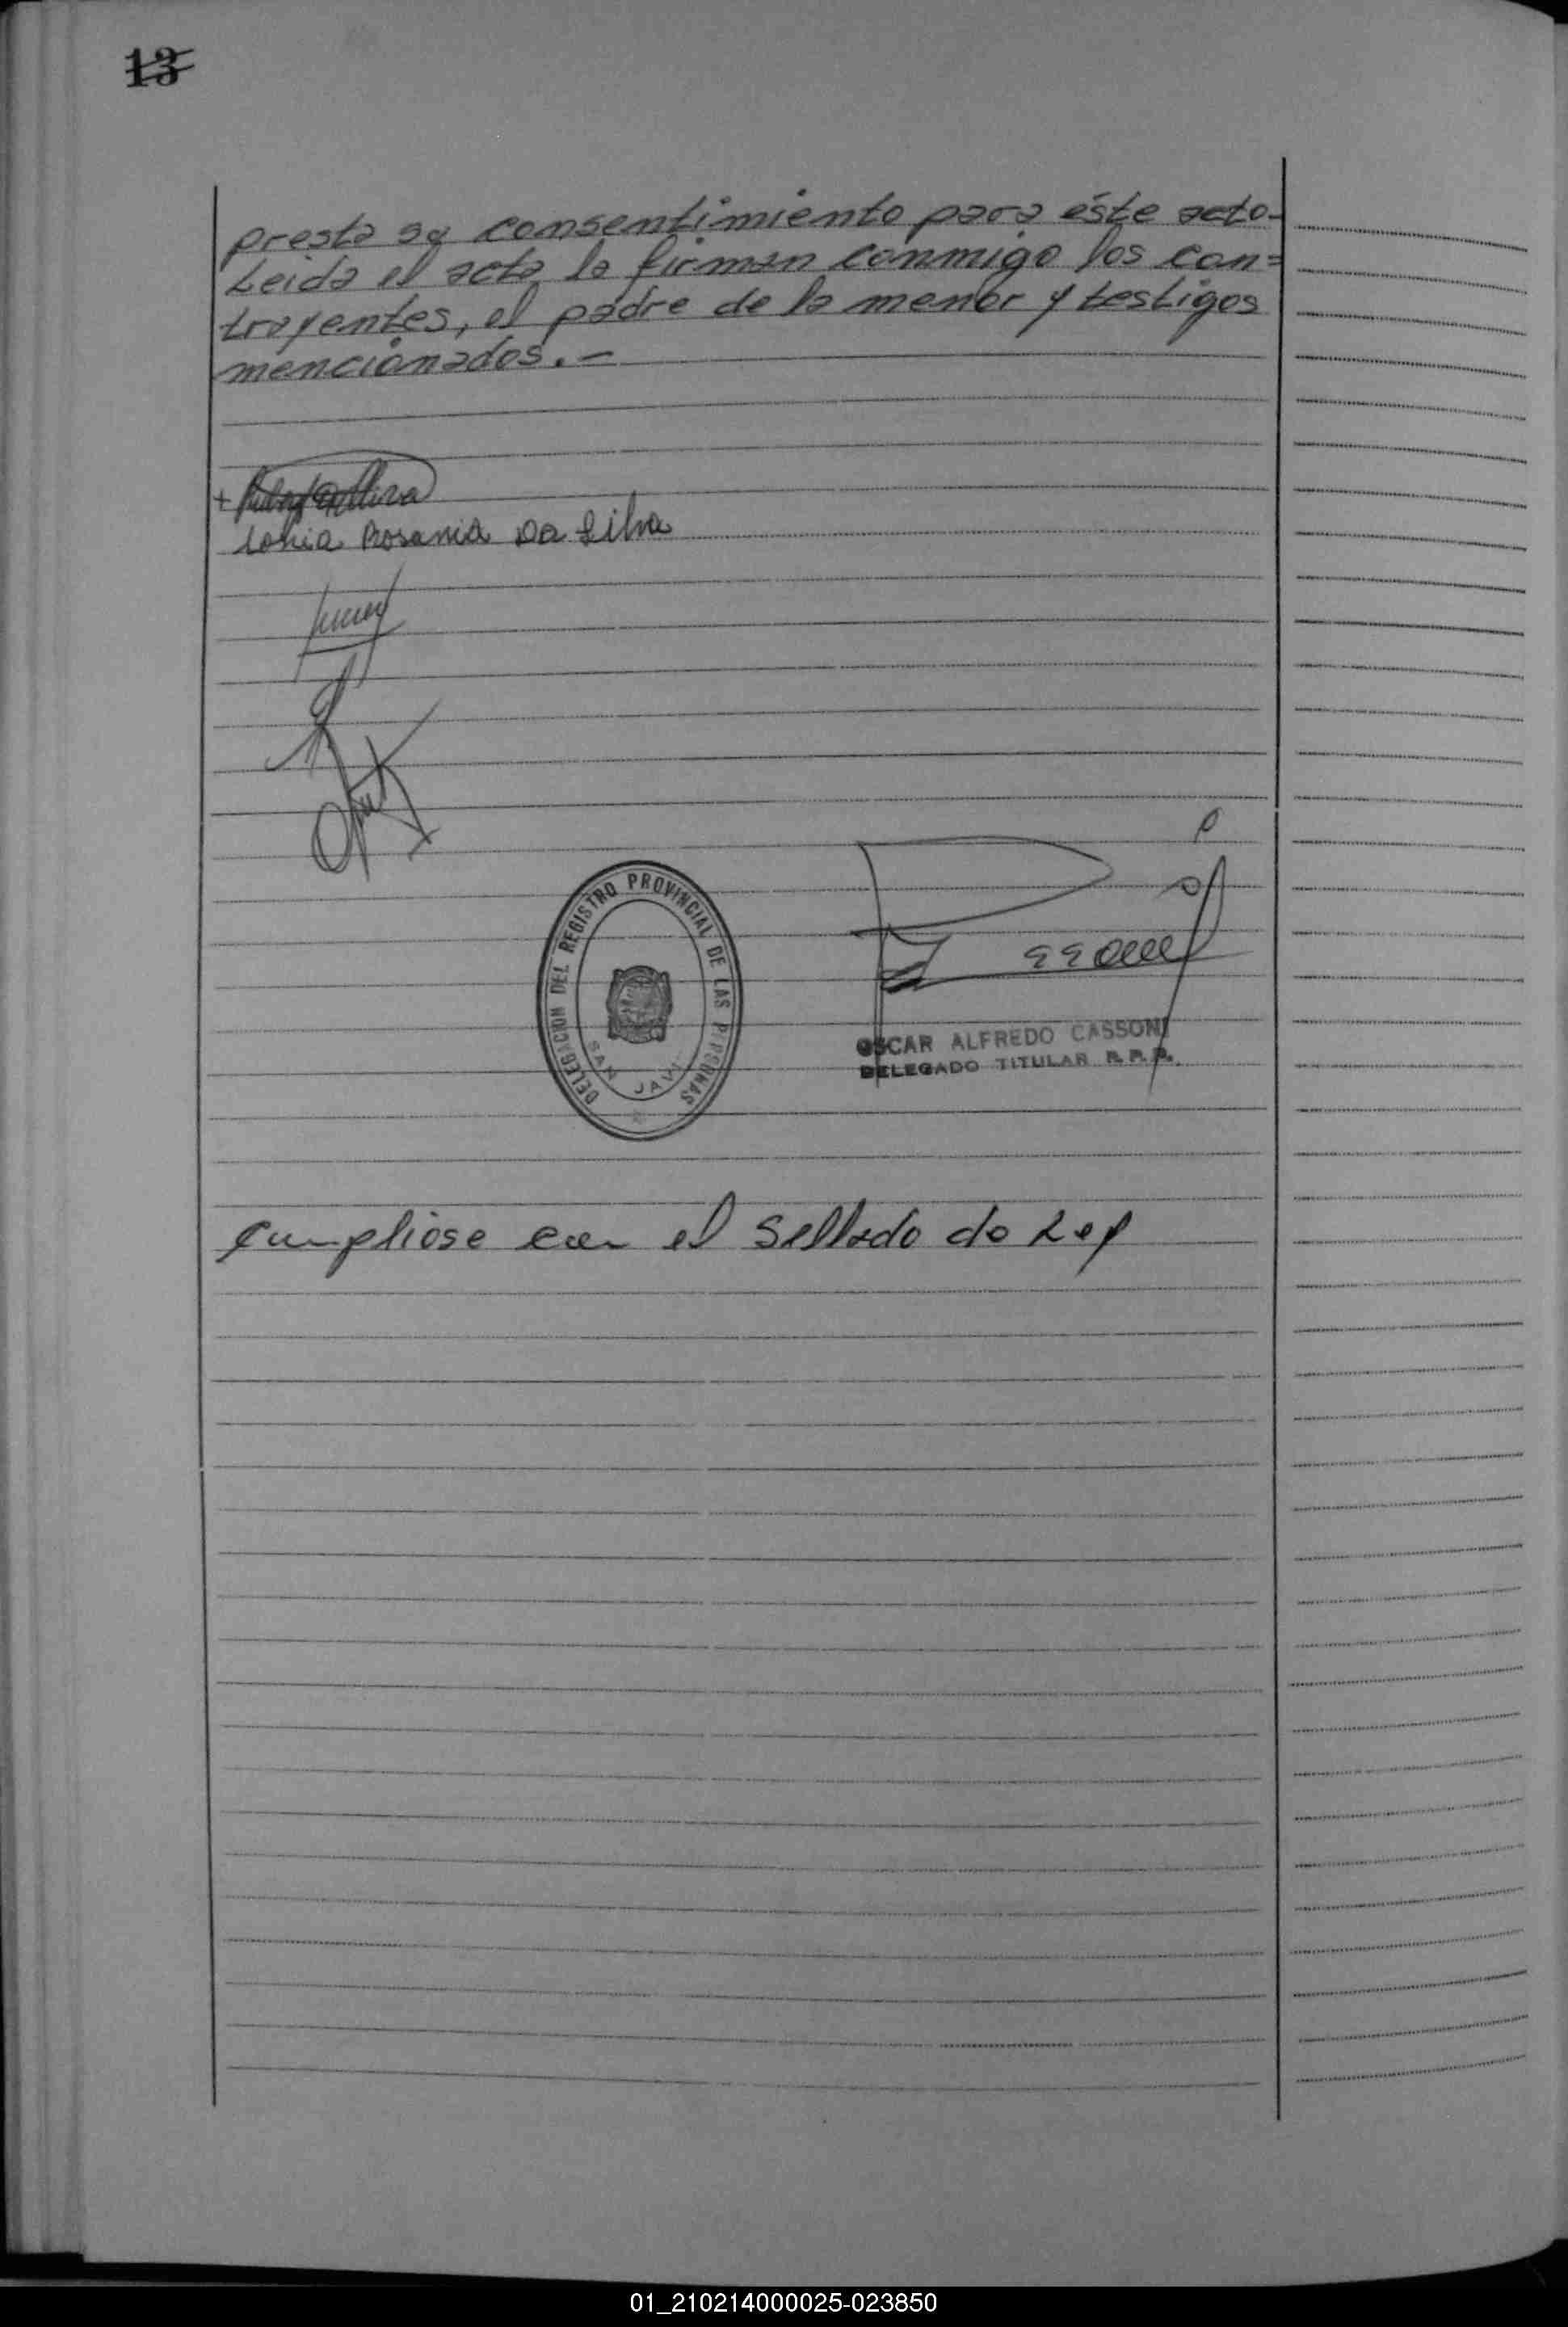 13
presta su consentimiento para éste acto-
Leida el acta la firman conmigo los con=
trayentes, el padre de la menor y testigos
mencionados.-
Rosania Da Silva
DELEGACION DEL REGISTRO PROVINCIAL DE LAS PERSONAS
SAN JAVI
OSCAR ALFREDO CASSONI
DELEGADO TITULAR R. P. P.
Cumpliose con el Sellado de Ley
01_210214000025-023850